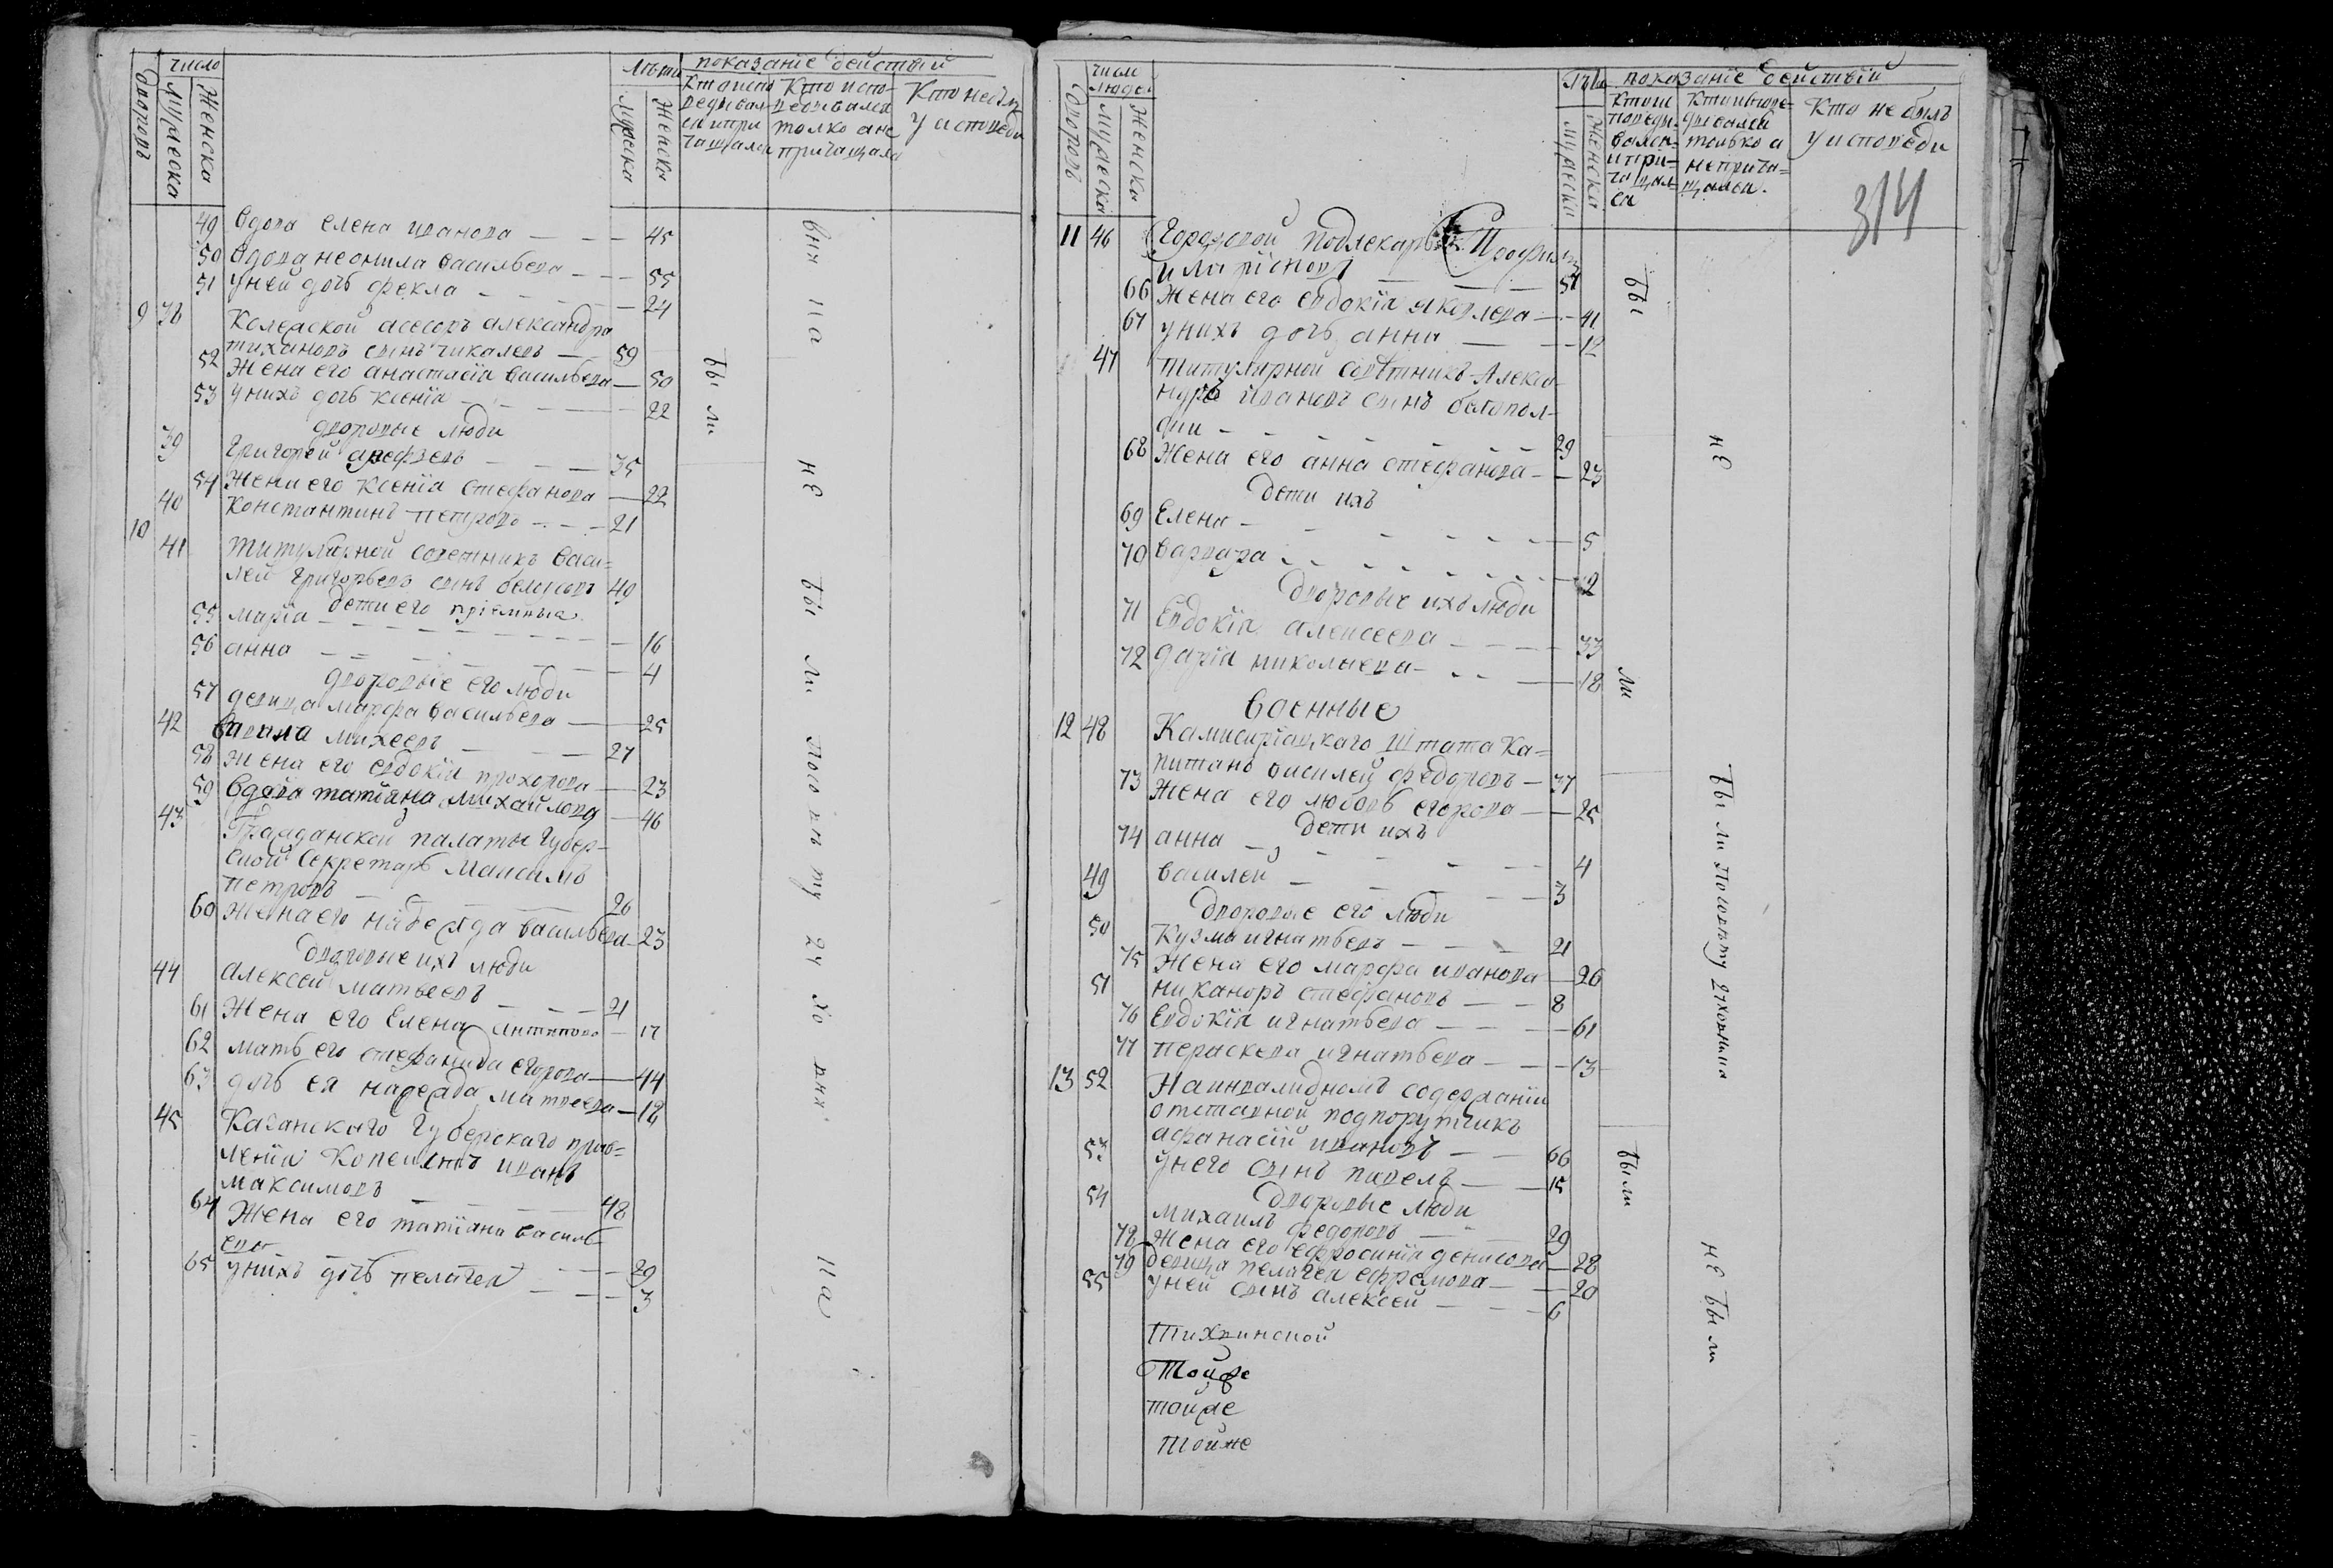 число
Лѣта
показанiе действiй
дворовъ
мужеска
Женска
мужеска
Женска
Кто испо
ведывал
ся и при
чащался
Кто испо-
ведывался
толко а не
причащался
Кто не былъ
у исповеди
49 вдова елена иванова 45
50 вдова неонила васильева 55
51 у ней дочь фекла 24
9 38 Колежской асесоръ александръ
тихановъ сынъ чикалевъ 59
52 Жена его анастасiа васильева 50
53 у нихъ дочь ксенiа 22
дворовые люди
39 Григорей арефьевъ 35
54 Жена его ксенiа стефанова 22
40 константинъ петровъ 21
10 41 титулярной советникъ васи=
лей григорьевъ сынъ 49
дети его прiемныя
55 марiа 16
56 анна 4
дворовые его люди
57 девица марфа васильева 25
42 михеевъ 27
58 жена его евдокiа прохорова 23
59 вдова татiана михайлова 46
43 Гражданской палаты губер-
ской секретарь Максимъ
петровъ 26
60 Жена его надежда васильева 23
дворовые ихъ люди
44 алексей матвеевъ 21
61 Жена его Елена 17
62 мать его стефанида егорова 44
63 дочь ея надежда матвеева 18
45 Казанскаго губерскаго прав=
ленiя Копеистъ иванъ
максимовъ 48
64 Жена его татiана василь
ева 29
65 у нихъ дочь пелагея 3
бы ли
не бы ли
число
людей
Лѣта
показанiе действiй
дворовъ
мужеска
Женска
мужеска
Женска
Кто ис
поведы-
вался
и при-
чащал-
ся
Кто испове-
дывался
только а
не прича=
щался.
Кто не былъ
у исповеди
314
11 46 Городовой подлекарь Трофимъ
иларiоновъ 51
66 Жена его евдокiа яковлева 41
67 у нихъ дочь анна 12
47 титулярной советникъ Алекса-
ндръ ивановъ сынъ
29
68 Жена его анна стефанова 23
дети ихъ
69 Елена 5
70 варвара 2
дворовые ихъ люди
71 Евдокiа алексеева 33
72 дарiа николаева 18
военные
12 48 Камисарiацкаго штата Ка=
питанъ василей федоровъ 37
73 Жена его любовь егорова 25
дети ихъ
74 анна 4
49 василей 3
дворовые его люди
50 кузма игнатьевъ 21
75 Жена его марфа иванова 26
51 никаноръ стефановъ 8
76 Евдокiа игнатьева 61
77 пераскева игнатьева 13
13 52 На инвалидномъ содержанiи
отставной подпорутчикъ
афанасiй ивановъ 66
53 у него сынъ павелъ 15
дворовые люди
54 михаилъ федоровъ 29
78 Жена его ефросинiа денисова 28
79 девица пелагея ефремова 20
55 у ней сынъ алексей 6
Тихвинской
Тойже
тойже
тойже
бы ли
не бы ли
были
не бы ли